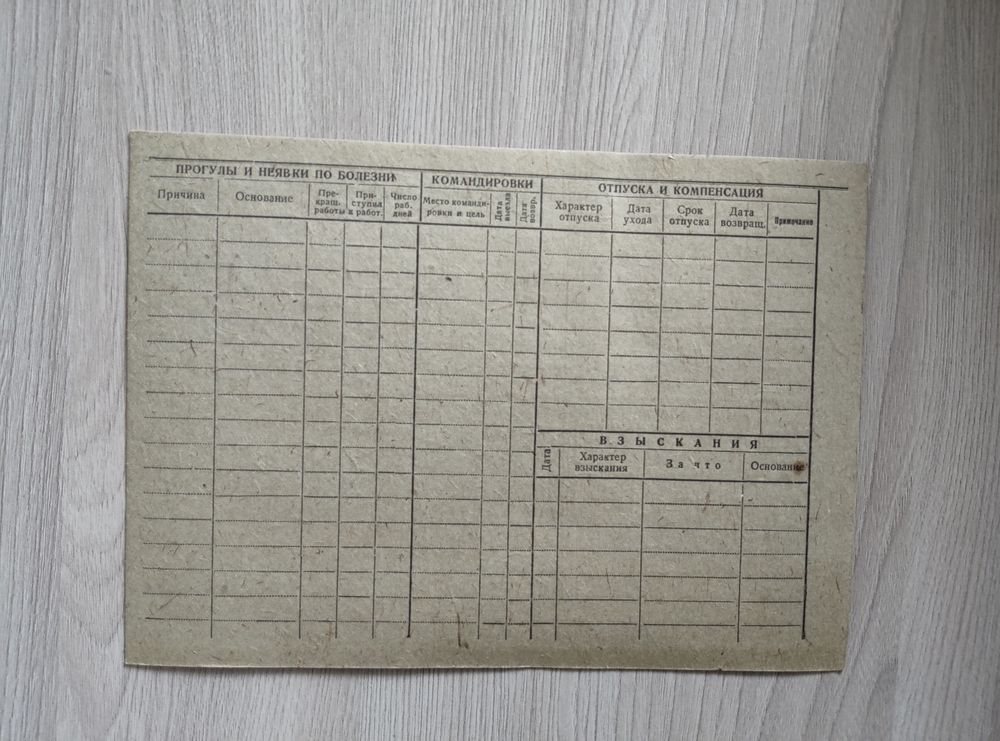 ПРОГУЛЫ И НЕЯВКИ ПО БОЛЕЗНИ
Причина
Основание
Пре-
кращ.
работы
При-
ступил
к работ.
Число
раб.
дней
КОМАНДИРОВКИ
Место команди-
ровки и цель
Дата
выезда
Дата
возвр.
ОТПУСКА И КОМПЕНСАЦИЯ
Характер
отпуска
Дата
ухода
Срок
отпуска
Дата
возвращ.
Примечание
ВЗЫСКАНИЯ
Дата
Характер
взыскания
За что
Основание